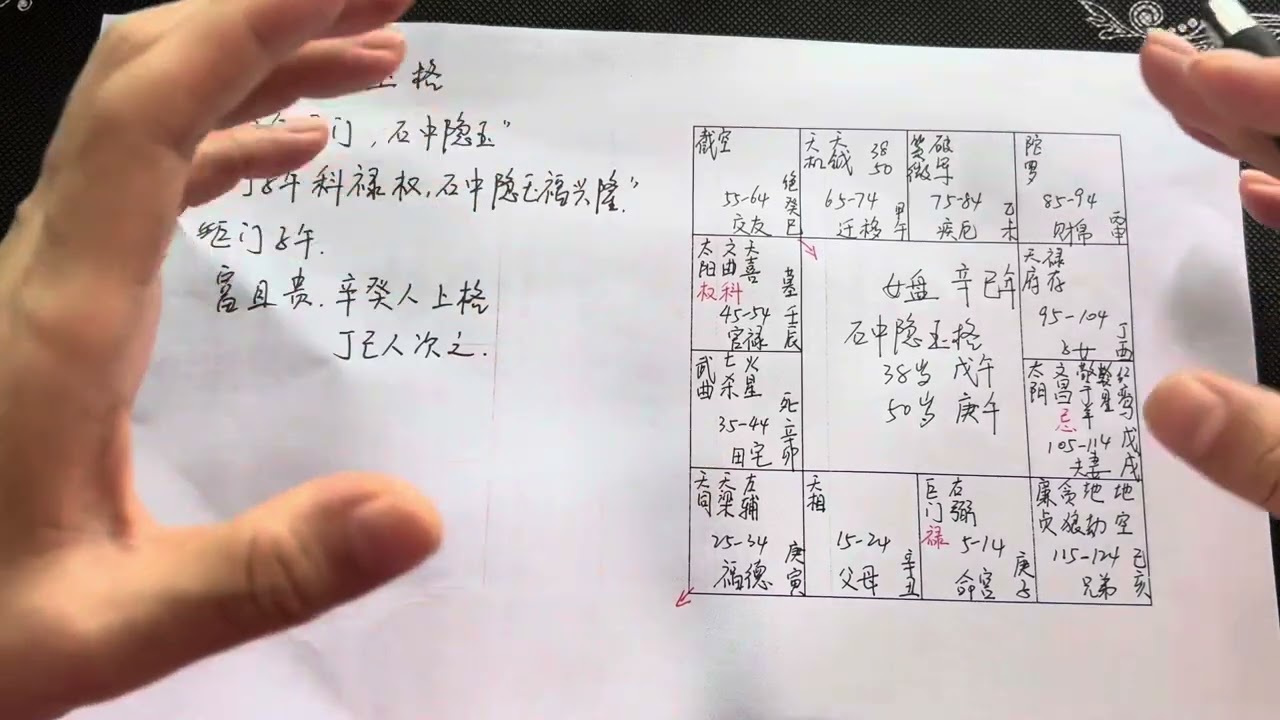 上格
门，石中隐玉”
子午科禄权，石中隐玉福兴隆”
巨门子午.
富且贵. 辛癸人上格
丁己人次之.
截空
55-64 绝癸巳
交友
天机 天钺 38 50
65-74 甲午
迁移
紫微 破军
75-84 乙未
疾厄
陀罗
85-94 丙申
财帛
太阳 文曲 天喜
权 科 墓
45-54 壬辰
官禄
女盘 辛巳年
石中隐玉格
38岁 戊午
50岁 庚午
天府 禄存
95-104 丁酉
子女
武曲 七杀 火星
35-44 死辛卯
田宅
太阳 文昌 擎羊 红鸾
忌
105-114 戊戌
夫妻
天同 天梁 左辅
25-34 庚寅
福德
天相
15-24 辛丑
父母
巨门 右弼
禄 5-14 庚子
命宫
廉贞 贪狼 地劫 地空
115-124 己亥
兄弟